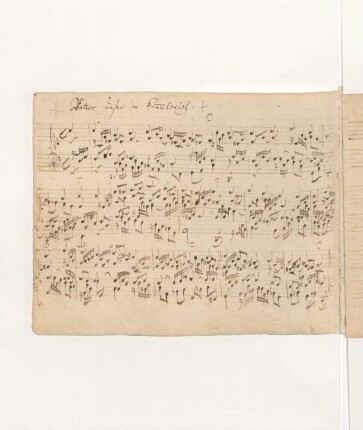 Vatter unser im Himelreich.